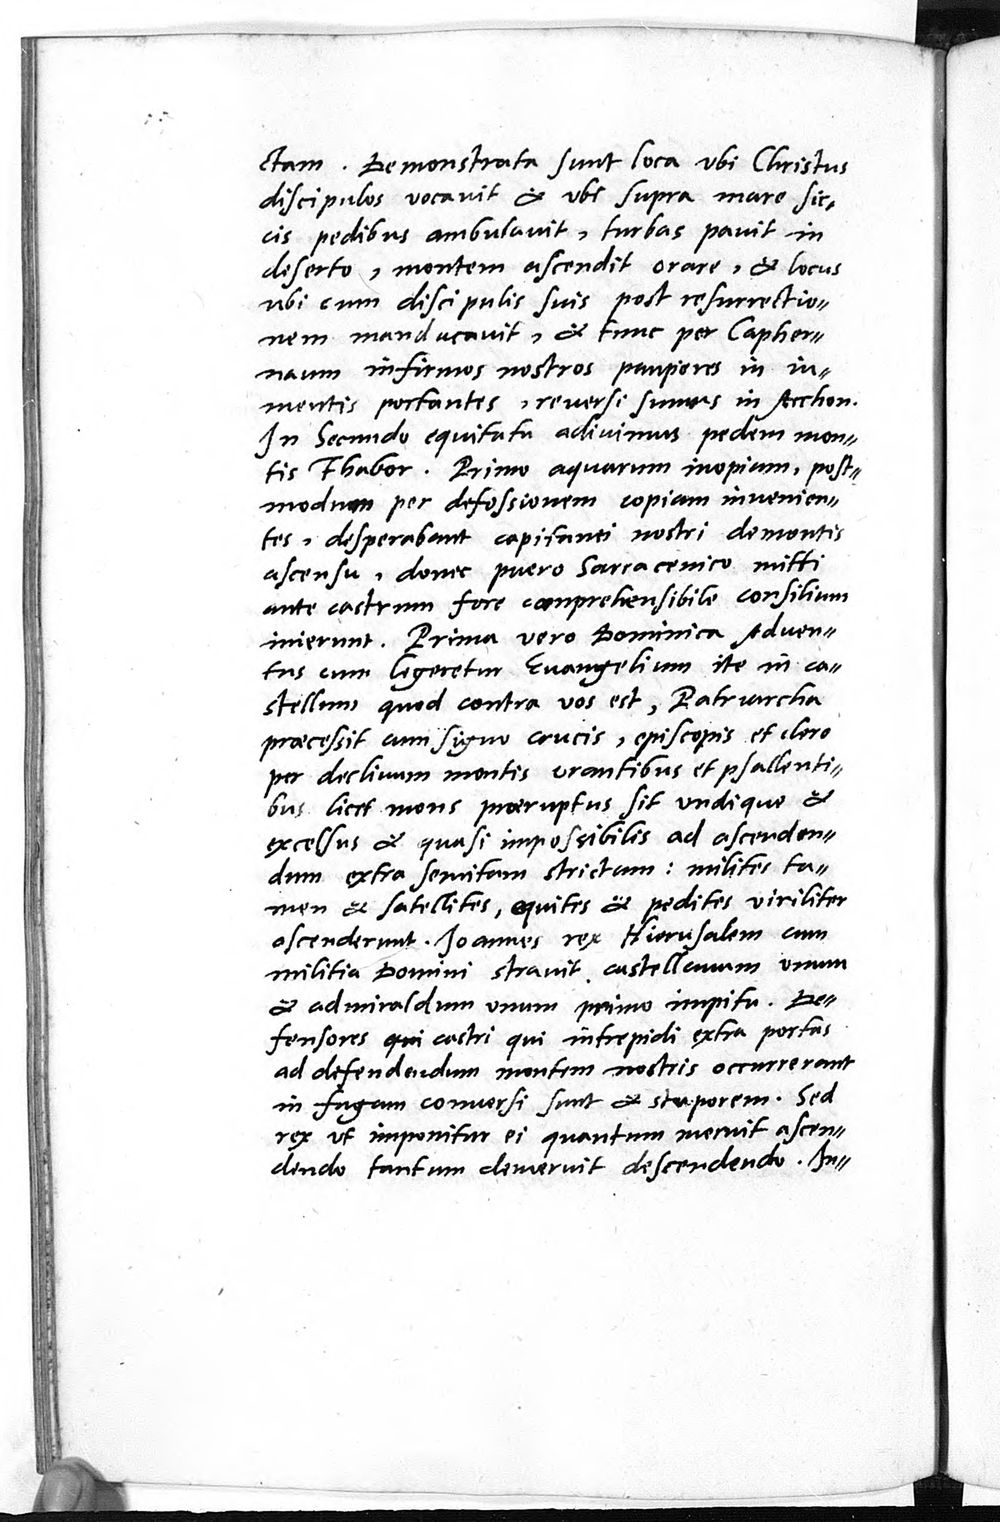 ctam . Demonstrata sunt loca vbi Christus
discipulos vocauit & vbi supra mare sic,
cis pedibus ambulauit, turbas pauit in
deserto, montem ascendit orare, & locus
ubi cum discipulis suis post resurrectio=
nem manducauit, & tunc per Capher=
naum infirmos nostros pauperes in iu=
mentis portantes, reuersi sumus in Acchon.
In Secundo equitatu adiuimus pedem mon=
tis Thabor. Primo aquarum inopiam, post=
modum per defossionem copiam inuenien=
tes, desperabant capitanei nostri de montis
ascensu, donec puero Sarracenico mitti
ante castrum fore comprehensibile consilium
inierunt. Prima vero Dominica Aduen=
tus cum legeretur Euangelium ite in ca=
stellum quod contra vos est, Patriarcha
præcessit cum signo crucis, episcopis et clero
per decliuum montis orantibus et psallenti=
bus licet mons præruptus sit vndique &
excelsus & quasi impossibilis ad ascenden=
dum extra semitam strictam: milites ta=
men & satellites, equites & pedites viriliter
ascenderunt. Joannes rex Hierusalem cum
militia Domini strauit castellanum vnum
& admiraldum vnum primo impitu. De=
fensores qui castri qui intrepidi extra portas
ad defendendum montem nostris occurrerant
in fugam conuersi sunt & stuporem. Sed
rex vt imponitur ei quantum meruit ascen=
dendo tantum demeruit descendendo. In=